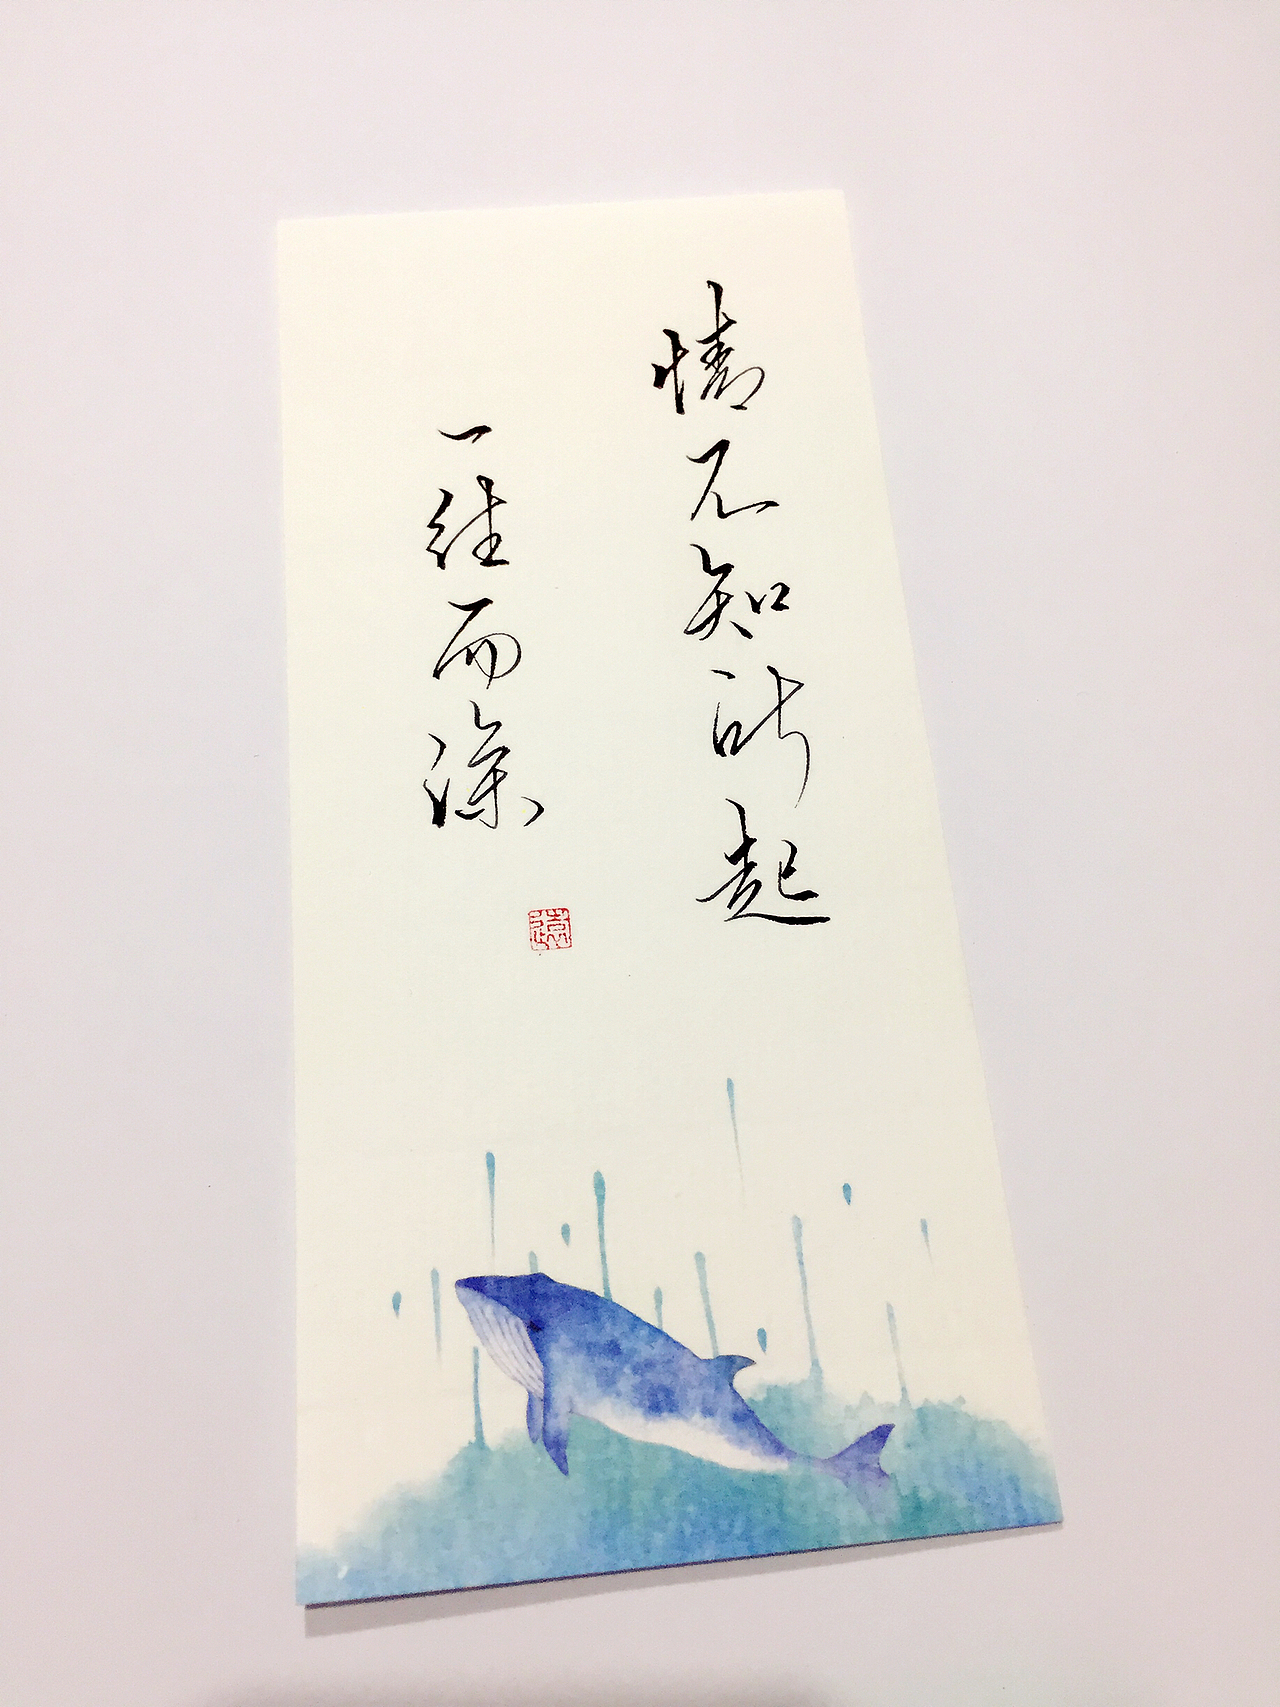 情不知所起
一往而深
遠